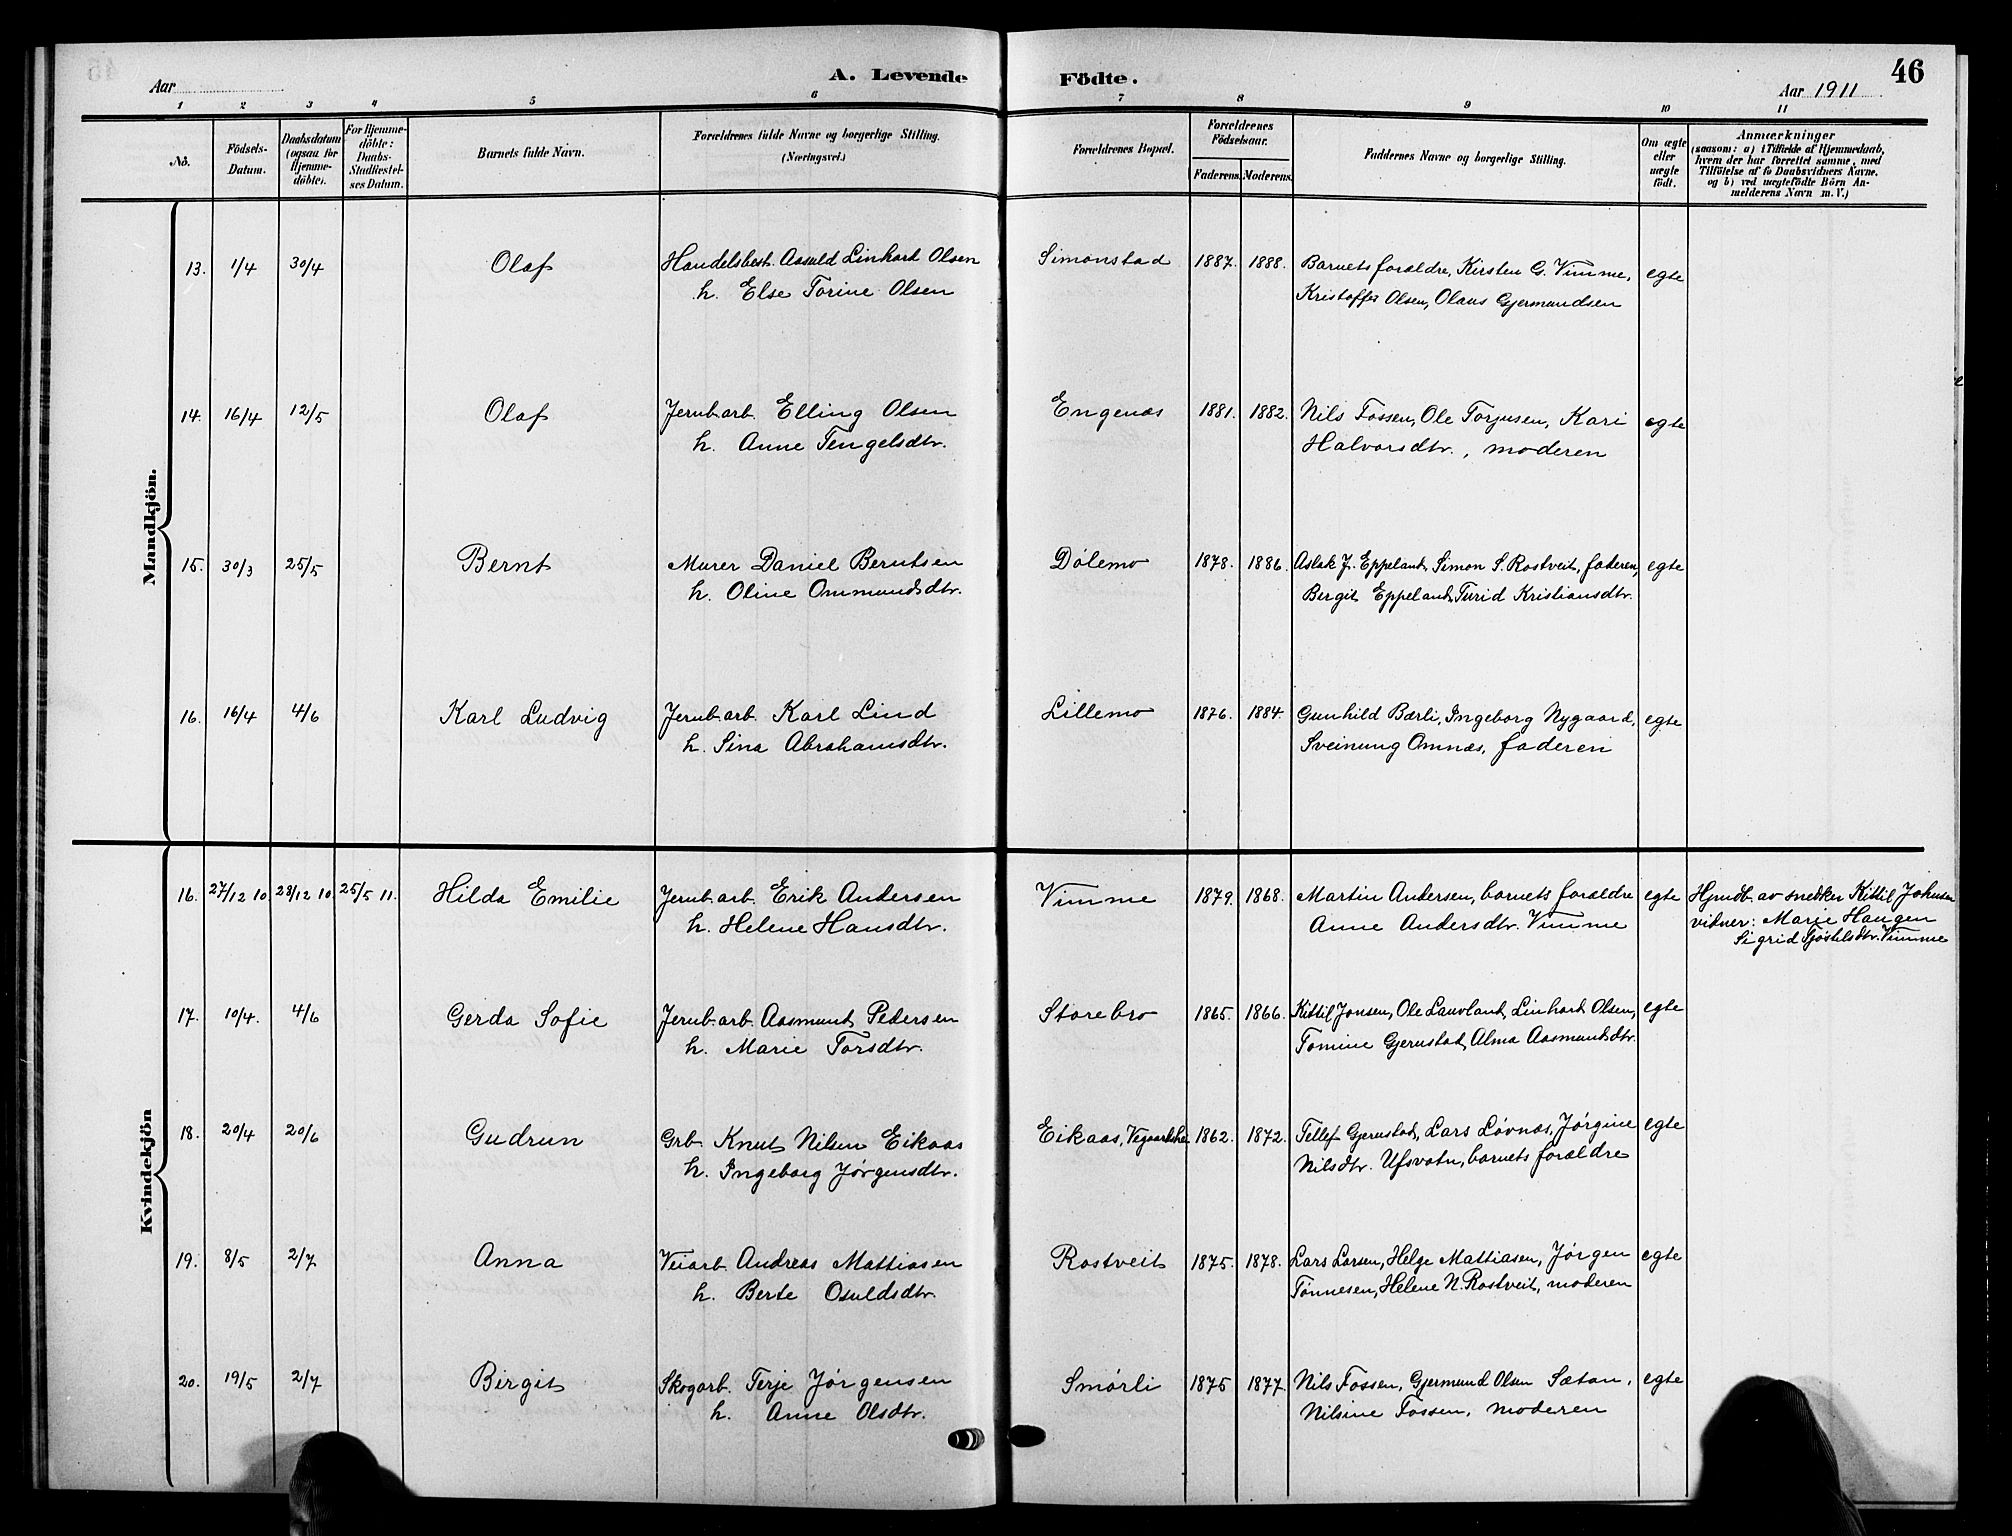 A. Levende Födte.
46
Aar
Aar 1911
1 2 3 4 5 6 7 8 9 10 11
No.
Födsels-Datum.
Daabsdatum (ogsaa for Hjemme-döbte).
For Hjemme-döbte: Daabs-Stadfæstel-ses Datum.
Barnets fulde Navn.
Forældrenes fulde Navne og borgerlige Stilling. (Næringsvei.)
Forældrenes Bopæl.
Forældrenes Födselsaar.
Faderens. Moderens.
Faddernes Navne og borgerlige Stilling.
Om ægte eller uægte födt.
Anmærkninger
(saasom: a) i Tilfælde af Hjemmedaab,
hvem der har forrettet samme, med
Tilföielse af to Daabsvidners Navne,
og b) ved uægtefödte Börn An-
melderens Navn m. V.)
Mandkjön.
13. 1/4 30/4 Olaf Handelsbest. Aasuld Linhart Olsen Simonstad 1887. 1888. Barnets forældre, Kirsten G. Vimme, egte
h. Else Torine Olsen Kristoffer Olsen, Olaus Gjermundsen
14. 16/4 12/5 Olaf Jernb.arb. Elling Olsen Engenæs 1881. 1882. Nils Fossen, Ole Torjusen, Kari egte
h. Anne Tengelsdtr. Halvorsdtr., moderen
15. 30/3 25/5 Bernt Murer Daniel Berntsen Dölemo 1878. 1886. Aslak J. Eppeland, Simon S. Rostveit, faderen, egte
h. Oline Ommundsdtr. Bergit Eppeland, Turid Kristiansdtr.
16. 16/4 4/6 Karl Ludvig Jernb.arb. Karl Lind Lillemo 1876. 1884. Gunhild Bærli, Ingeborg Nygaard, egte
h. Sina Abrahamsdtr. Sveinung Omnæs, faderen
Kvindekjön
16. 27/12 10. 28/12 10. 25/5 11. Hilda Emilie Jernb.arb. Erik Andersen Vimme 1879. 1868. Martin Andersen, barnets forældre egte Hjmdb. av snedker Kittil Johnsen
h. Helene Hansdtr. Anne Andersdtr. Vimme vidner: Marie Haugen
Sigrid Sjöstilsdtr. Vimme
17. 10/4. 4/6 Gerda Sofie Jernb.arb. Aasmund Pedersen Storebro 1865. 1866. Kittil Jonsen, Ole Lauvland, Linhart Olsen, egte
h. Marie Torsdtr. Tomine Gjerustad, Alma Aasmundsdtr.
18. 20/4 20/6 Gudrun Grb. Knut Nilsen Eikaas Eikaas, Vegaardshei 1862. 1872. Tellef Gjerustad, Lars Lövnæs, Jörgine egte
h. Ingeborg Jörgensdtr. Nilsdtr. Ufsvatn, barnets forældre
19. 8/5 2/7 Anna Veiarb. Andreas Mattiasen Rostveit 1875. 1878. Lars Larsen, Helge Mattiasen, Jörgen egte
h. Berte Osuldsdtr. Tönnesen, Helene N. Rostveit, moderen
20. 19/5 2/7 Birgit Skogarb. Terje Jörgensen Smörli 1875 1877. Nils Fossen, Gjermund Olsen Sætan, egte
h. Anne Olsdtr. Nilsine Fossen, moderen